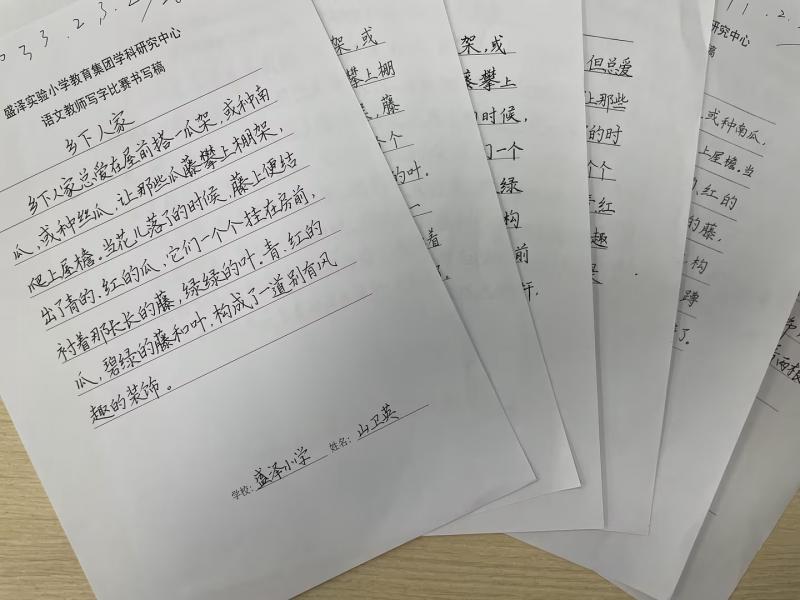 盛泽实验小学教育集团学科研究中心
语文教师写字比赛书写稿
乡下人家
乡下人家总爱在屋前搭一瓜架，或种南
瓜，或种丝瓜，让那些瓜藤攀上棚架，
爬上屋檐。当花儿落了的时候，藤上便结
出了青的、红的瓜，它们一个个挂在房前，
衬着那长长的藤，绿绿的叶。青、红的
瓜，碧绿的藤和叶，构成了一道别有风
趣的装饰。
学校：盛泽小学 姓名：山卫英
架，或
攀上棚
藤
个
的叶.
一
着
架，或
藤攀上
时候，
们一个
绿
构
前
但总爱
上那些
的时
个个
红
趣
研究中心
或种南瓜，
上屋檐。当
红的
的藤，
构
蹲
了。